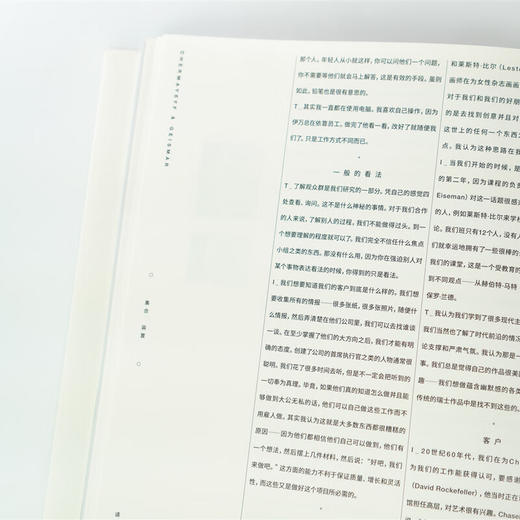 CHERMAYEFF & GEISMAR
集合 运营
那个人。年轻人从小就这样，你可以问他们一个问题，
你不需要等他们就会马上解答，这是有效的手段。虽则
如此，铅笔也是很有意思的。
T_ 其实我一直都在使用电脑。我喜欢自己操作，因为
伊万总在依靠员工。做完了他看一看，改好了就随便我
们了。只是工作方式不同而已。
一般的看法
T_ 了解观众群是我们研究的一部分。凭自己的感觉四
处查看、询问。这不是什么神秘的事情。对于我们合作
的人来说，了解别人的过程，我们不能做得过头。到一
个想要理解的程度就可以了。我们完全不信任什么焦点
小组之类的东西。那没有什么用，因为你在强迫别人对
某个事物表达看法的时候，你得到的只是看法。
I_ 我们想要知道我们的客户到底是什么样的。我们想
要收集所有的情报——很多张纸，很多张照片，随便什
么情报，然后弄清楚在他们公司里，我们可以去找谁谈
一谈。在至少掌握了他们的大方向之后，我们才能有明
确的态度。创建了公司的首席执行官之类的人物通常很
聪明。我们花了很多时间去听，但是不一定会把听到的
一切奉为真理。毕竟，如果他们真的知道怎么做并且能
够做到大公无私的话，他们可以自己做这些工作而不
用雇人做。其实我认为这就是大多数东西都很糟糕的
原因——因为他们都相信他们自己可以做到，他们有
一个想法，然后摆上几件材料，然后说：“好吧，我们
来做吧。”这方面的能力不利于保证质量、增长和灵活
性，而这些又是做好这个项目所必需的。
和莱斯特·比尔（Leste
画师在为女性杂志画画
对于我们和我们的好朋
的是去找到创意并且对
这世上的任何一个东西
点。我认为这种思路在我
I_ 当我们开始的时候，是
的第二年，因为课程的负
Eiseman）对这一话题很感
的人，例如莱斯特·比尔来学校
论。我们班只有12个人，没有人
们就幸运地拥有了一些很棒的
我们的课堂，这是一个受教育的
到不同观点——从赫伯特·马特
保罗·兰德。
T_ 我认为我们学到了很多现代主
我们当然也了解了时代前沿的情况
论支撑和严肃气氛。我认为那是一
事。我们总是觉得自己的作品很美
趣——我们想做蕴含幽默感的各类
传统的瑞士作品中是找不到这些的。
客户
I_ 20世纪60年代，我们在为Ch
为我们的工作能获得认可，要感谢
（David Rockefeller），他当时正在
馆担任高层，对艺术很有兴趣。Chase